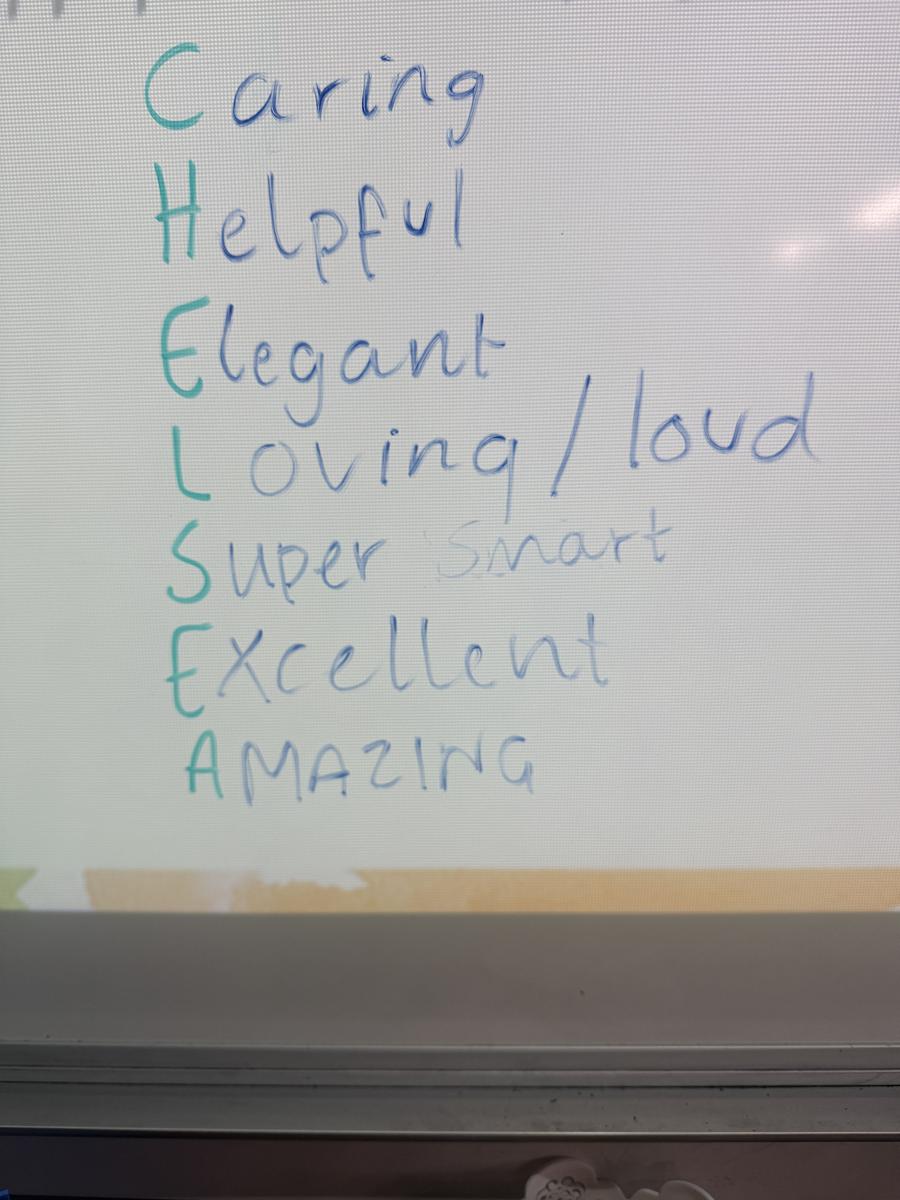 Caring
Helpful
Elegant
Loving / loud
Super smart
Excellent
AMAZING